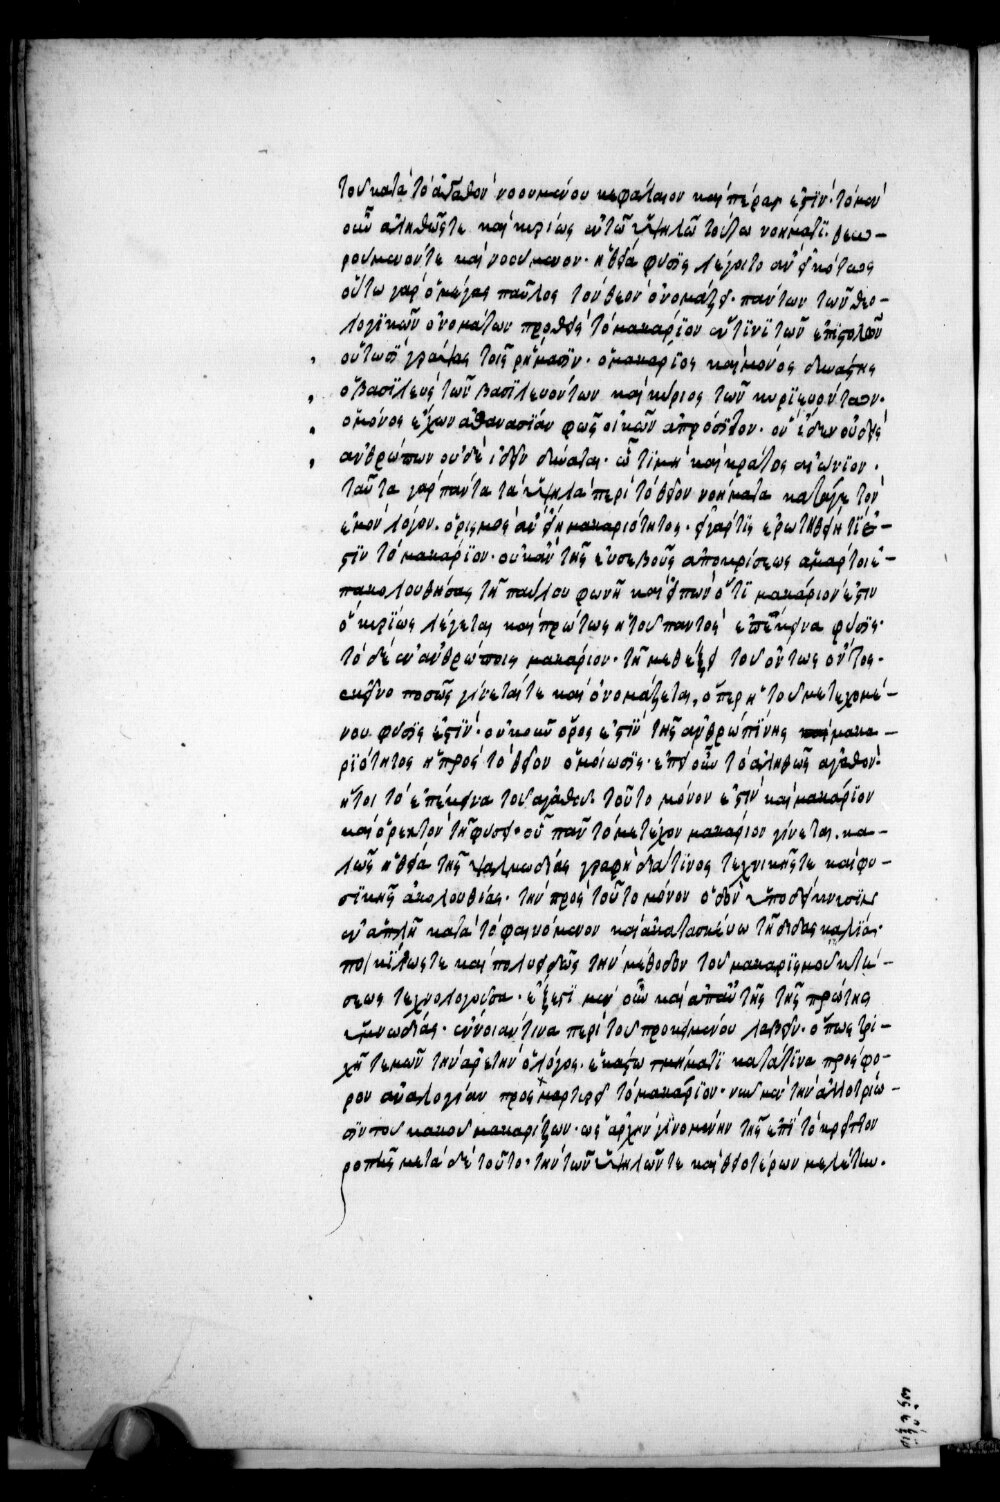 τοῦ κατὰ τὸ ἀγαθὸν νοουμένου κεφάλαιον καὶ πέρας ἐστίν· τὸ μὲν
οὖν ἀληθῶς τε καὶ κυρίως ἐν τῷ ὑψηλῷ τούτω νοήματι θεω-
ρούμενόν τε καὶ νοούμενον· ἡ θεία φύσις λέγοιτο ἂν εἰκότως
οὕτω γὰρ ὁ μέγας παῦλος τὸν θεὸν ὀνομάζει· πάντων τῶν θεο-
λογικῶν ὀνομάτων προθεὶς τὸ μακάριον ἔν τινι τῶν ἐπιστολῶν
οὑτωσὶ γράψας τοῖς ῥήμασιν· ὁ μακάριος καὶ μόνος δυνάστης
ὁ βασιλεὺς τῶν βασιλευόντων καὶ κύριος τῶν κυριευόντων·
ὁ μόνος ἔχων ἀθανασίαν φῶς οἰκῶν ἀπρόσιτον· ὃν εἶδεν οὐδεὶς
ἀνθρώπων οὐδὲ ἰδεῖν δύναται· ὧ τιμὴ καὶ κράτος αἰώνιον·
ταῦτα γὰρ πάντα τὰ ὑψηλὰ περὶ τὸ θεῖον νοήματα κατάγε τὸν
ἐμὸν λόγον· ὁρισμὸς ἂν εἴη μακαριότητος· εἰ γάρ τις ἐρωτηθείη τί ἐ-
στιν τὸ μακάριον· οὐκ ἂν τῆς εὐσεβοῦς ἀποκρίσεως ἁμάρτοι ἐ-
πακολουθήσας τῆ παύλου φωνῆ καὶ εἰπὼν ὅτι μακάριόν ἐστιν
ὃ κυρίως λέγεται καὶ πρώτως ἡ τοῦ παντὸς ἐπέκεινα φύσις·
τὸ δὲ ἐν ἀνθρώποις μακάριον· τῆ μεθέξει τοῦ ὄντως ὄντος·
ἐκεῖνο ποσῶς γίνεταί τε καὶ ὀνομάζεται, ὅπερ ἡ τοῦ μετεχομέ-
νου φύσις ἐστίν· οὐκοῦν ὅρος ἐστὶν τῆς ἀνθρωπίνης μακα-
ριότητος ἡ πρὸς τὸ θεῖον ὁμοίωσις· ἐπεὶ οὖν τὸ ἀληθῶς ἀγαθὸν
ἤτοι τὸ ἐπέκεινα τοῦ ἀγαθοῦ τοῦτο μόνον ἐστὶν καὶ μακάριον
καὶ ὀρεκτὸν τῆ φύσει· οὗ πᾶν τὸ μετέχον μακάριον γίνεται· κα-
λῶς ἡ θεία τῆς ψαλμωδίας γραφὴ διά τινος τεχνικῆς τε καὶ φυ-
σικῆς ἀκολουθίας· τὴν πρὸς τοῦτο μόνον ὁδὸν ὑποδείκνυσιν
ἐν ἁπλῆ κατὰ τὸ φαινόμενον καὶ ἀκατασκεύω τῆ διδασκαλία·
ποικίλως τε καὶ πολυειδῶς τὴν μέθοδον τοῦ μακαρισμοῦ κτή-
σεως τεχνολογοῦσα· ἔξεστι μὲν οὖν καὶ ἀπ' αὐτῆς τῆς πρώτης
ὑμνωδίας· ἔννοιάν τινα περὶ τοῦ προκειμένου λαβεῖν· ὅπως τρι-
χῆ τεμὼν τὴν ἀρετὴν ὁ λόγος· ἑκάστω τμήματι κατά τινα πρόσφο-
ρον ἀναλογίαν προσμαρτυρεῖ τὸ μακάριον· νῦν μὲν τὴν ἀλλοτρίω-
σιν τοῦ κακοῦ μακαρίζων· ὡς ἀρχὴν γινομένην τῆς ἐπὶ τὸ κρεῖττον
ῥοπῆς μετὰ δὲ τοῦτο· τὴν τῶν ὑψηλῶν τε καὶ θειοτέρων μελέτην.